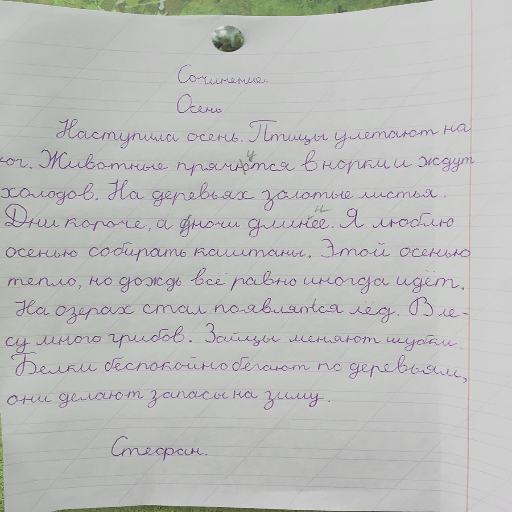 Сочинение.
Осень
Наступила осень. Птицы улетают на
юг. Животные прячутся в норки и ждут
холодов. На деревьях золотые листья.
Дни короче, а ночи длиннее. Я люблю
осенью собирать каштаны. Этой осенью
тепло, но дождь всё равно иногда идёт.
На озерах стал появлятся лёд. В ле-
су много грибов. Зайцы меняют шубки.
Белки беспокойно бегают по деревьям,
они делают запасы на зиму.
Стефан.